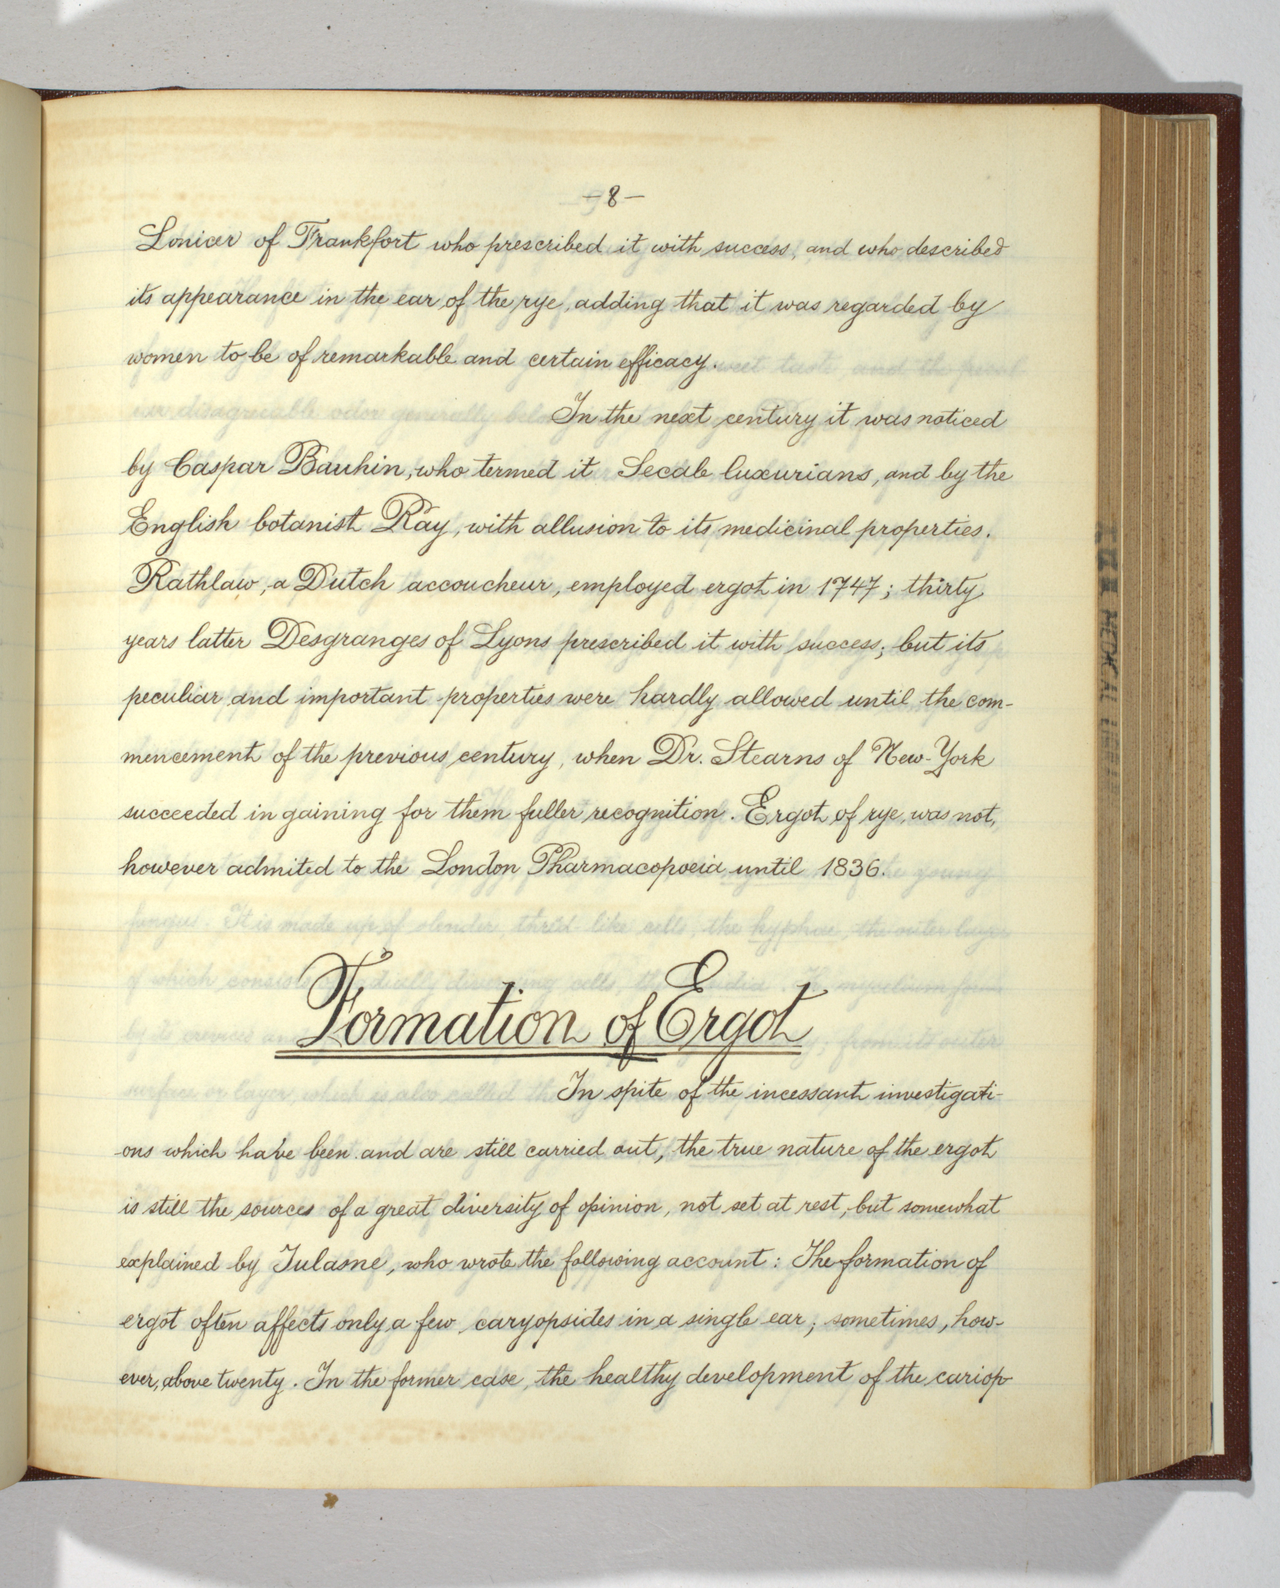 -8-
Lonicer of Frankfort who prescribed it with success, and who described
its appearance in the ear of the rye, adding that it was regarded by
women to be of remarkable and certain efficacy.
In the next century it was noticed
by Caspar Bauhin, who termed it Secale luxurians, and by the
English botanist Ray, with allusion to its medicinal properties.
Rathlaw, a Dutch accoucheur, employed ergot in 1747; thirty
years latter Desgranges of Lyons prescribed it with success; but its
peculiar and important properties were hardly allowed until the com-
mencement of the previous century, when Dr. Stearns of New-York
succeeded in gaining for them fuller recognition. Ergot of rye, was not,
however admited to the London Pharmacopoeia until 1836.
Formation of Ergot
In spite of the incessant investigati-
ons which have been and are still carried out, the true nature of the ergot
is still the sources of a great diversity of opinion, not set at rest, but somewhat
explained by Tulasne, who wrote the following account: The formation of
ergot often affects only a few caryopsides in a single ear; sometimes, how-
ever, above twenty. In the former case, the healthy development of the cariop-